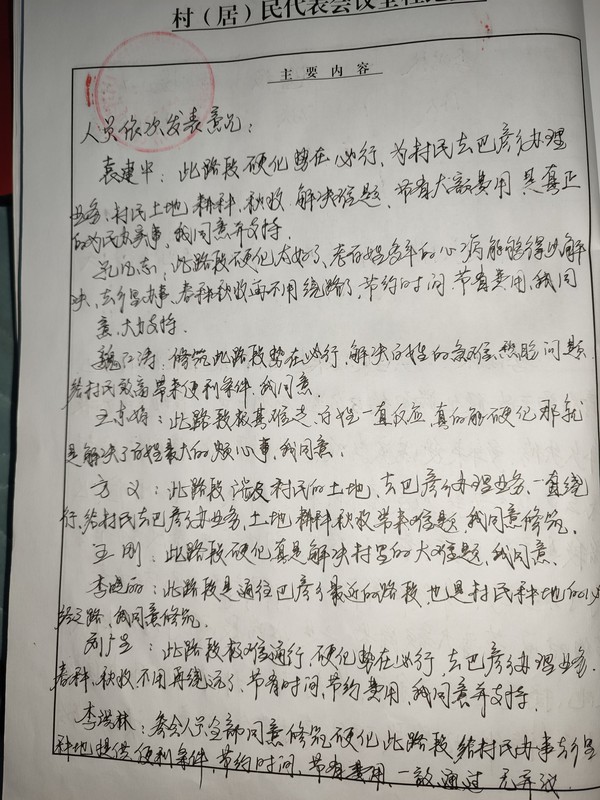 村（居）民代表会议全程记
主要内容
人员依次发表意见：
袁建中：此路段硬化势在必行，为村民去巴彦乡办理
业务，村民土地耕种，秋收解决难题，节省大额费用，是真正
的为民办实事，我同意并支持。
此路段硬化太好了，老百姓多年的心病能够得以解
决，去乡里办事，春种秋收再不用绕路了，节约时间，节省费用，我同
意，大力支持。
魏江涛：修筑此路段势在必行，解决百姓的急难愁盼问题，
给村民致富带来便利条件，我同意。
王：此路段极其难走，百姓一直反应，真的能硬化那就
是解决了百姓最大的烦心事，我同意。
方义：此路段涉及村民的土地，去巴彦乡办理业务，一直绕
行，给村民去巴彦乡办业务，土地耕种秋收带来难题，我同意修筑。
王刚：此路段硬化真是解决村里的大难题，我同意。
李晓丽：此路段是通往巴彦乡最近的路段，也是村民种地的必
经之路，我同意修筑。
此路段极难通行，硬化势在必行，去巴彦乡办理业务，
春种，秋收，不用再绕远了，节省时间，节约费用，我同意并支持。
李瑞林：参会人员全部同意修筑硬化此路段，给村民办事去乡里
种地提供便利条件，节约时间，节省费用，一致通过，无异议